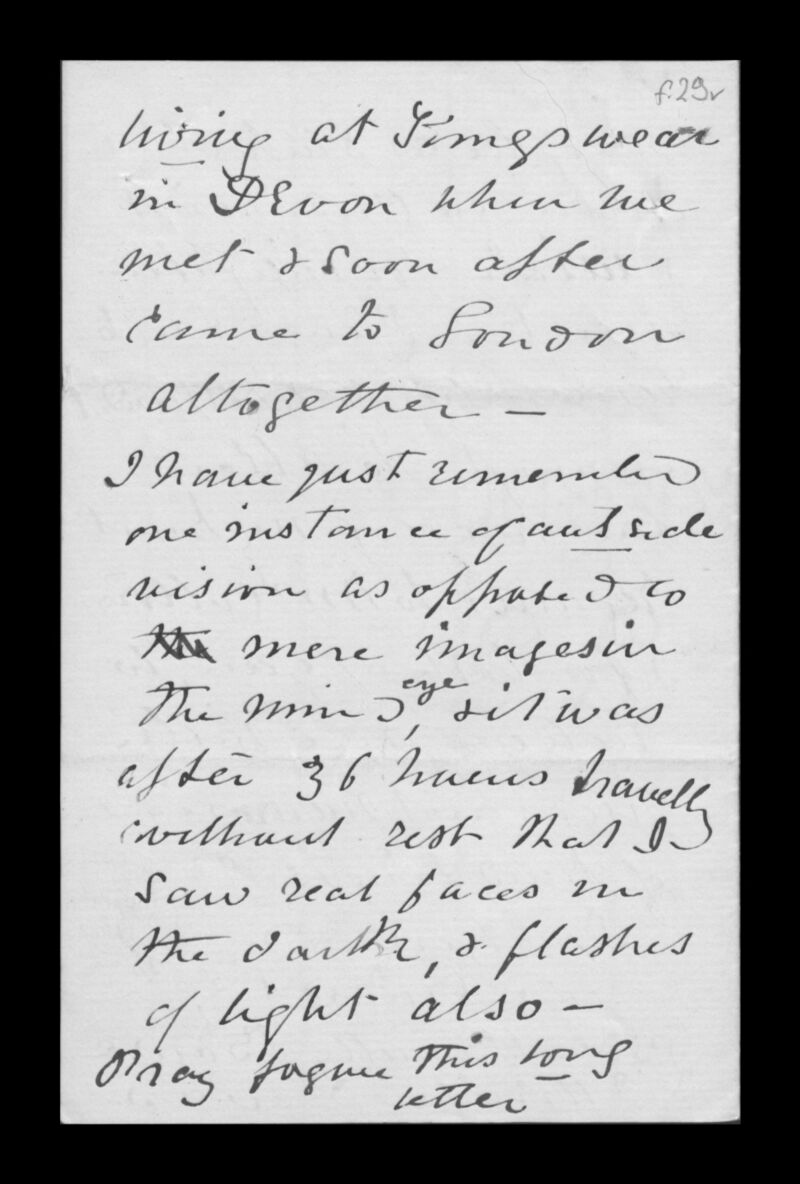 f.29v
living at Kingswear
in DEvon when we
met & soon after
came to London
altogether –
I have just remembered
one instance of outside
vision as opposed to
the mere images in
the mind eye, & it was
after 36 hours travelly
without rest that I
saw real faces in
the dark, & flashes
of light also –
Pray forgive this long
letter